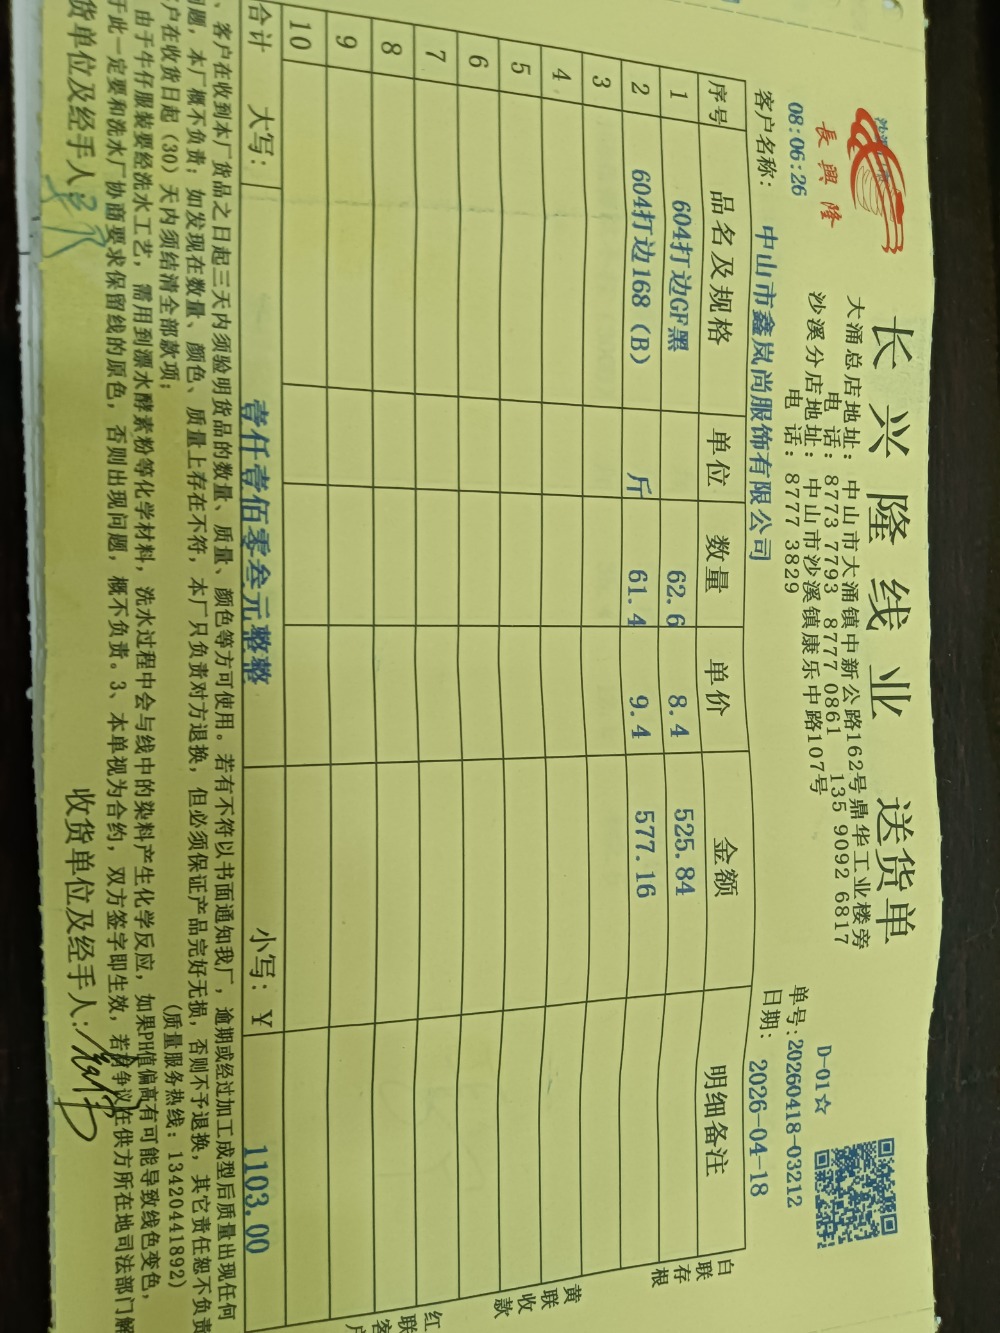 長興隆
08:06:26
长兴隆线业 送货单
大涌总店地址: 中山市大涌镇中新公路162号鼎华工业楼旁
电 话: 8773 7793 8777 0861 135 9092 6817
沙溪分店地址: 中山市沙溪镇康乐中路107号
电 话: 8777 3829
D-01☆
单号:20260418-03212
客户名称: 中山市鑫岚尚服饰有限公司 日期: 2026-04-18
序号 品名及规格 单位 数量 单价 金额 明细备注
1 604打边GF黑 62.6 8.4 525.84
2 604打边168（B） 斤 61.4 9.4 577.16
3
4
5
6
7
8
9
10
合计 大写: 壹仟壹佰零叁元整整 小写: ¥ 1103.00
白联存根
黄联收款
红联客户
、客户在收到本厂货品之日起三天内须验明货品的数量、质量、颜色等方可使用。若有不符以书面通知我厂，逾期或经过加工成型后质量出现任何
问题，本厂概不负责；如发现在数量、颜色、质量上存在不符，本厂只负责对方退换，但必须保证产品完好无损，否则不予退换，其它责任恕不负责
客户在收货日起（30）天内须结清全部款项； （质量服务热线：13420441892）
由于牛仔服装要经洗水工艺，需用到漂水酵素粉等化学材料，洗水过程中会与线中的染料产生化学反应，如果PH值偏高有可能导致线色变色，
于此一定要和洗水厂协商要求保留线的原色，否则出现问题，概不负责。3、本单视为合约，双方签字即生效，若有争议在供方所在地司法部门解
货单位及经手人: 收货单位及经手人: